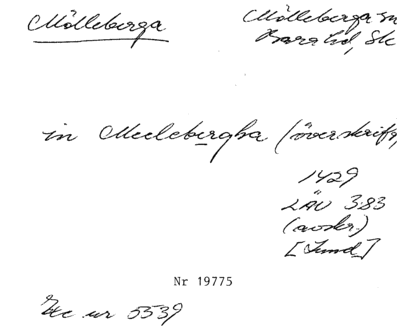 Mölleberga Mölleberga sn
Bara hd, Sk
in Meelebergha (överskrift,
1429
LÄU 3:83
(avskr.)
[Lund]
Nr 19775
Exc ur 5539